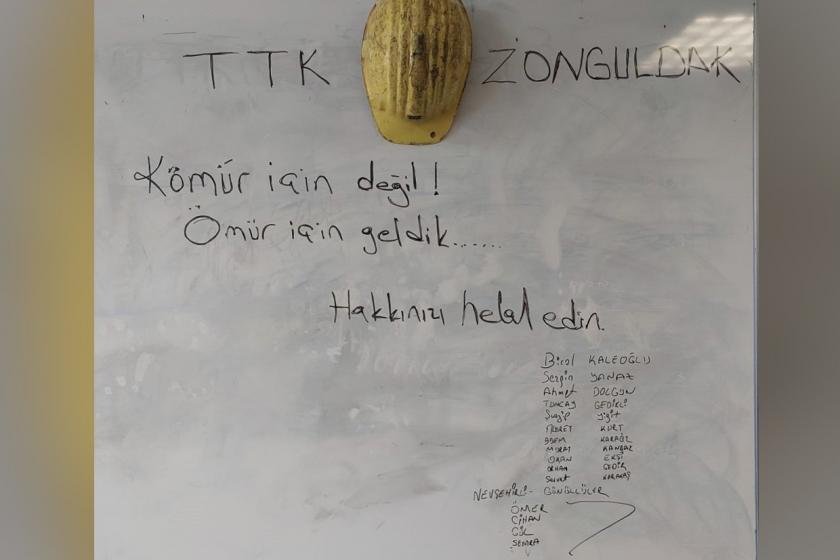 TTK ZONGULDAK
Kömür için değil!
Ömür için geldik.......
Hakkınızı helal edin.
Birol KALEOĞLU
Sezgin YANAZ
Ahmet DOLGUN
TUNCAY GEDİKLİ
Yiğit
KURT
ADEM KARAÖZ
MURAT KANDAZ
OKAN EKŞİ
ORHAN GEDİK
KARAKAŞ
NEVŞEHİRLİ- GÖNÜLLÜLER
ÖMER
CİHAN
GÜL
SEMRA